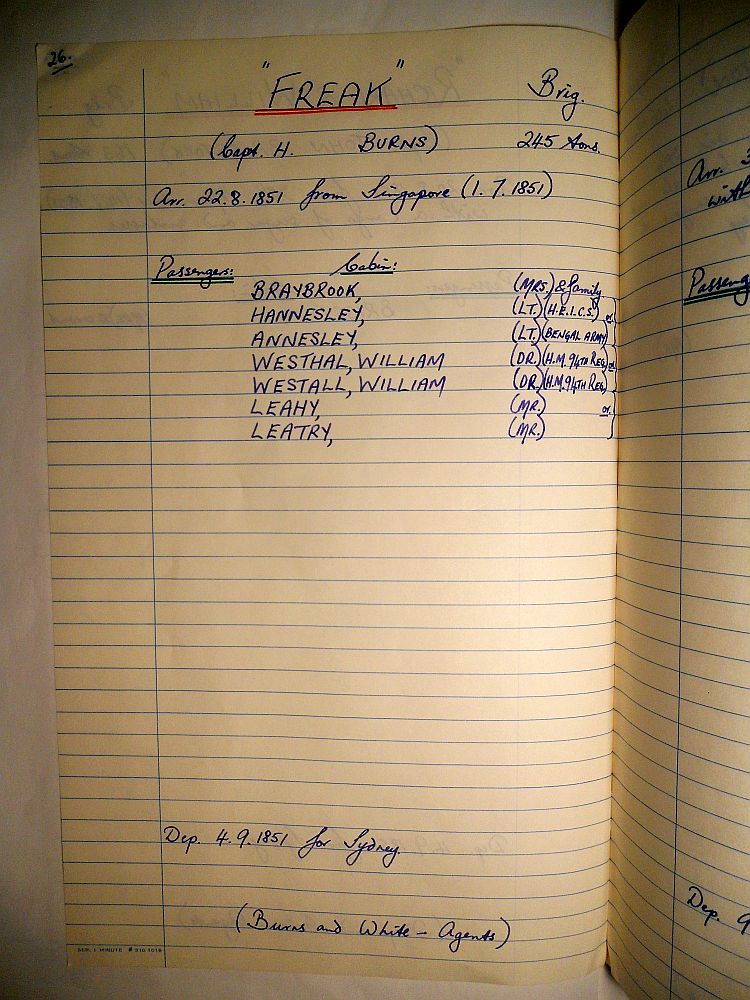 26.
"FREAK" Brig.
(Capt. H. BURNS) 245 tons.
Arr. 22.8.1851 from Singapore (1.7.1851)
Passengers: Cabin:
BRAYBROOK, (MRS.) & family.
HANNESLEY, (LT.) (H.E.I.C.S.) or
ANNESLEY, (LT.) (BENGAL ARMY)
WESTHAL, WILLIAM (DR.) (H.M. 94TH REG.) or
WESTALL, WILLIAM (DR.) (H.M. 94TH REG.)
LEAHY, (MR.) or
LEATRY, (MR.)
Dep. 4.9.1851 for Sydney.
(Burns and White - Agents)
Arr. 3
with
Passeng
Dep. 9